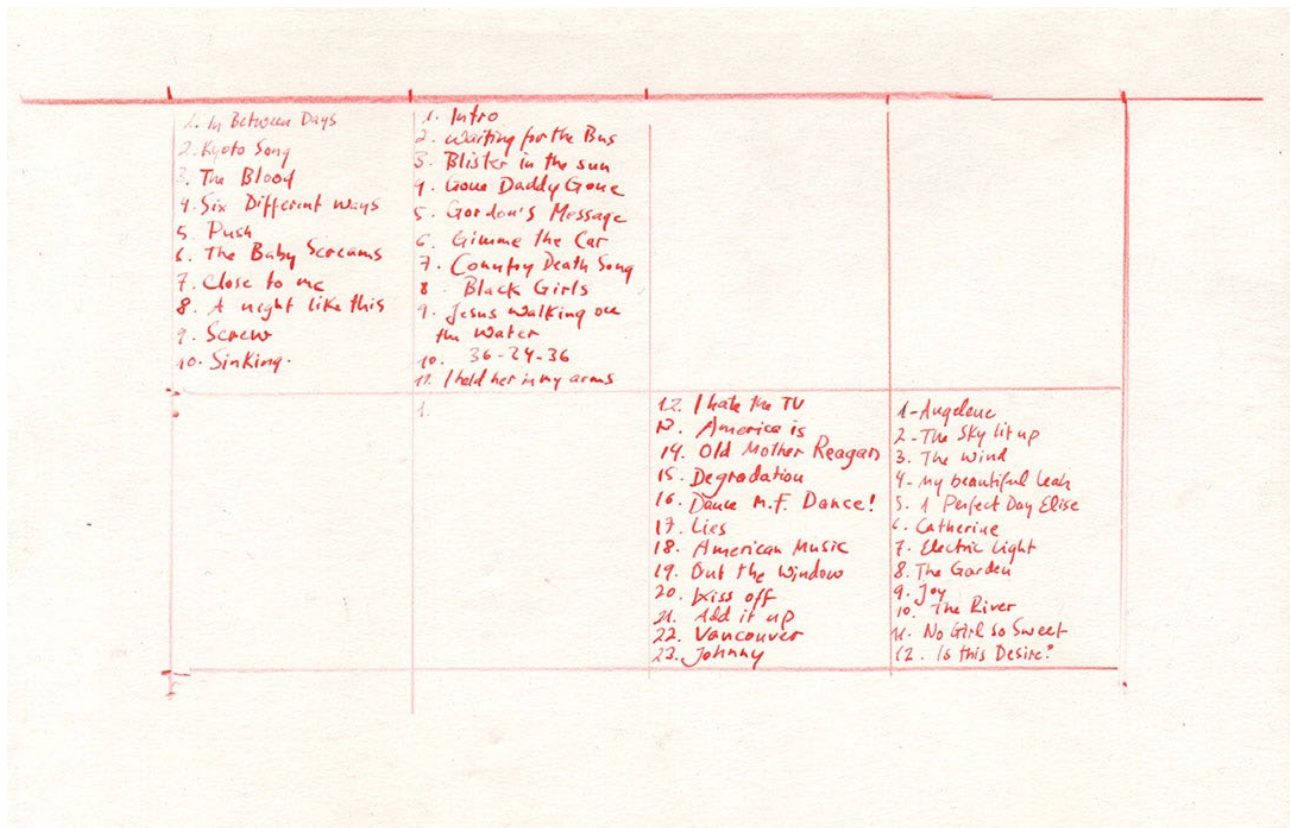 1. In Between Days
2. Kyoto Song
3. The Blood
4. Six Different ways
5. Push
6. The Baby Screams
7. Close to me
8. A night like this
9. Screw
10. Sinking.
1. Intro
2. waiting for the Bus
3. Blister in the sun
4. Gone Daddy Gone
5. Gordon's Message
6. Gimme the Car
7. Country Death Song
8. Black Girls
9. Jesus walking on
the water
10. 36-24-36
11. I held her in my arms
1.
12. I hate the TV
13. America is
14. Old Mother Reagan
15. Degradation
16. Dance M.F. Dance!
17. Lies
18. American Music
19. Out the Window
20. Kiss off
21. Add it up
22. Vancouver
23. Johnny
1-Angelene
2-The Sky lit up
3. The Wind
4-My beautiful Leah
5. A Perfect Day Elise
6. Catherine
7. Electric Light
8. The Garden
9. Joy
10. The River
11. No Girl so Sweet
12. Is this Desire?